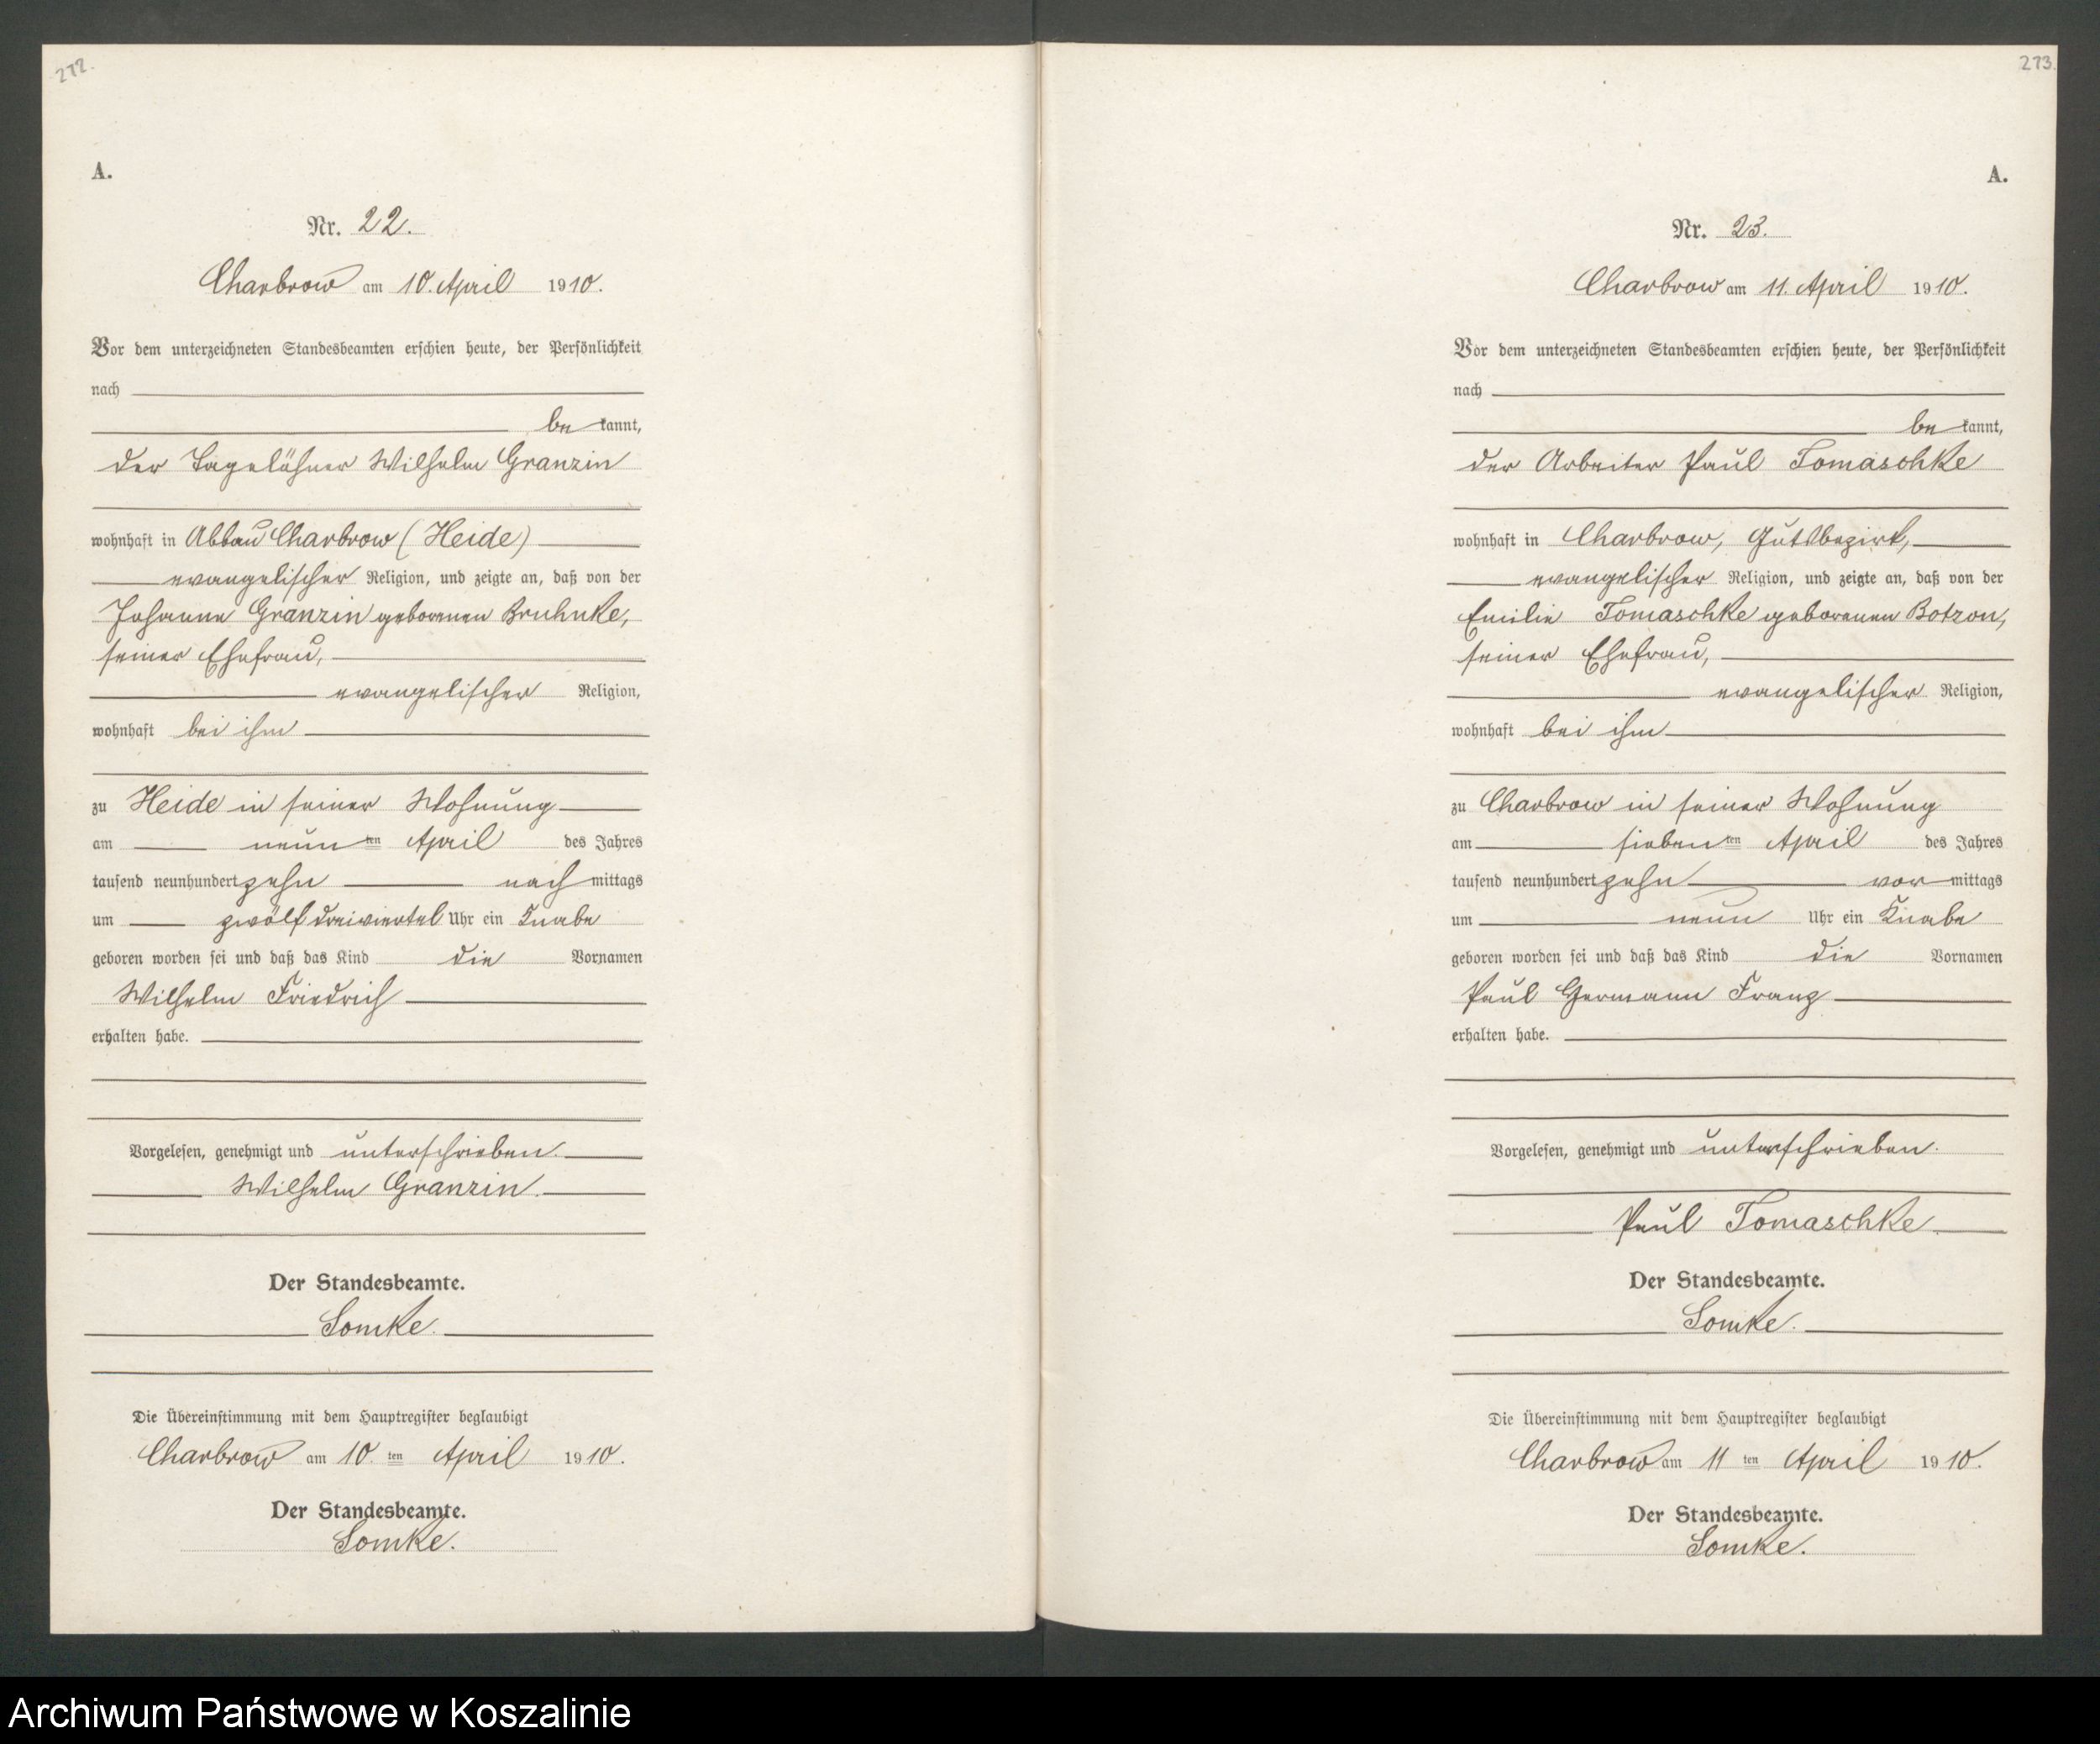 272.
A.
Nr. 22.
Charbrow am 10. April 1910.
Vor dem unterzeichneten Standesbeamten erschien heute, der Persönlichkeit
nach
be kannt,
der Tagelöhner Wilhelm Granzin
wohnhaft in Abbau Charbrow (Heide)
evangelischer Religion, und zeigte an, daß von der
Johanne Granzin geborenen Bruhnke,
seiner Ehefrau,
evangelischer Religion,
wohnhaft bei ihm
zu Heide in seiner Wohnung
am neun ten April des Jahres
tausend neunhundert zehn nach mittags
um zwölf dreiviertel Uhr ein Knabe
geboren worden sei und daß das Kind die Vornamen
Wilhelm Friedrich
erhalten habe.
Vorgelesen, genehmigt und unterschrieben.
Wilhelm Granzin.
Der Standesbeamte.
Somke.
Die Übereinstimmung mit dem Hauptregister beglaubigt
Charbrow am 10. ten April 1910.
Der Standesbeamte.
Somke.
273.
A.
Nr. 23.
Charbrow am 11. April 1910.
Vor dem unterzeichneten Standesbeamten erschien heute, der Persönlichkeit
nach
be kannt,
der Arbeiter Paul Tomaschke
wohnhaft in Charbrow, Gutsbezirk,
evangelischer Religion, und zeigte an, daß von der
Emilie Tomaschke geborenen Botzon,
seiner Ehefrau,
evangelischer Religion,
wohnhaft bei ihm
zu Charbrow in seiner Wohnung
am sieben ten April des Jahres
tausend neunhundert zehn vor mittags
um neun Uhr ein Knabe
geboren worden sei und daß das Kind die Vornamen
Paul Germann Franz
erhalten habe.
Vorgelesen, genehmigt und unterschrieben.
Paul Tomaschke.
Der Standesbeamte.
Somke.
Die Übereinstimmung mit dem Hauptregister beglaubigt
Charbrow am 11 ten April 1910.
Der Standesbeamte.
Somke.
Archiwum Państwowe w Koszalinie